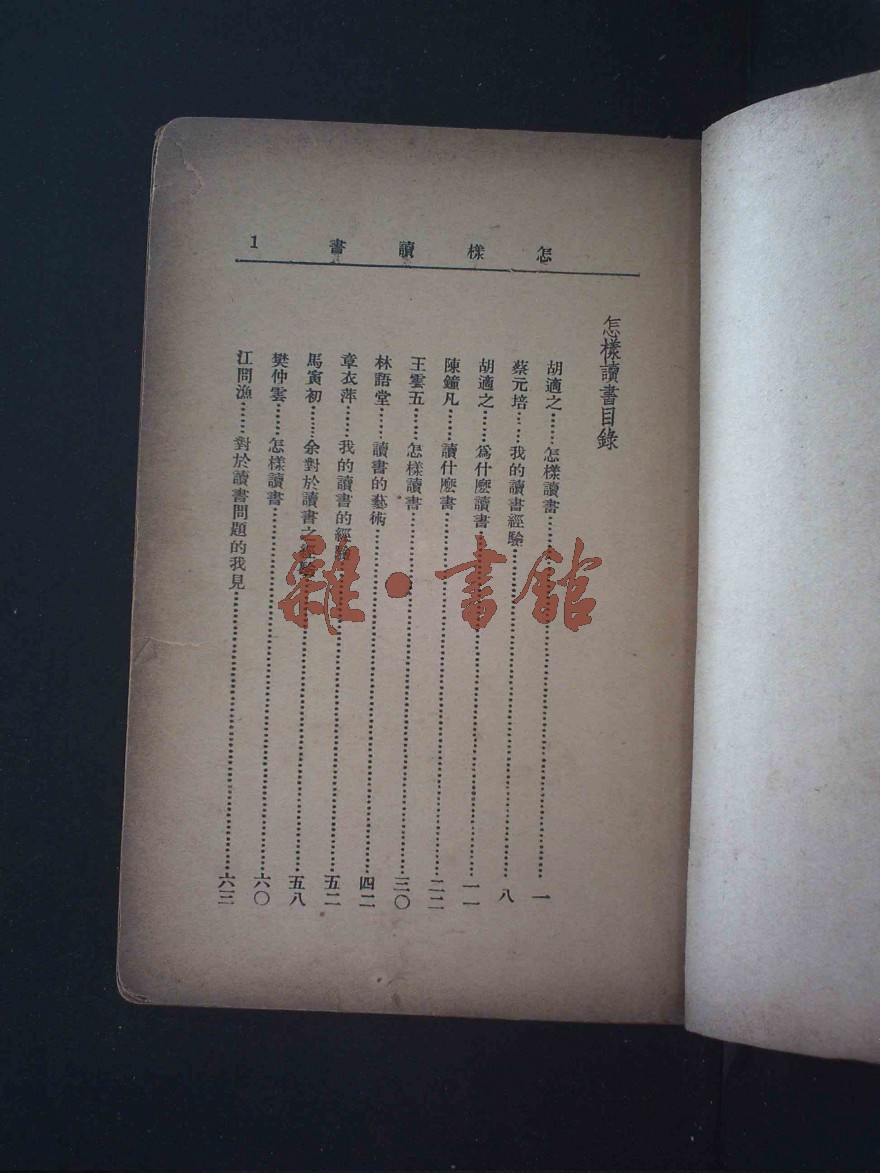 怎樣讀書 1
怎樣讀書目錄
胡適之……怎樣讀書……一
蔡元培……我的讀書經驗……八
胡適之……爲什麽讀書……一一
陳鐘凡……讀什麽書……二二
王雲五……怎樣讀書……三〇
林語堂……讀書的藝術……四二
章衣萍……我的讀書的經驗……五二
馬寅初……余對於讀書之……五八
樊仲雲……怎樣讀書……六〇
江問漁……對於讀書問題的我見……六三
雜·書館